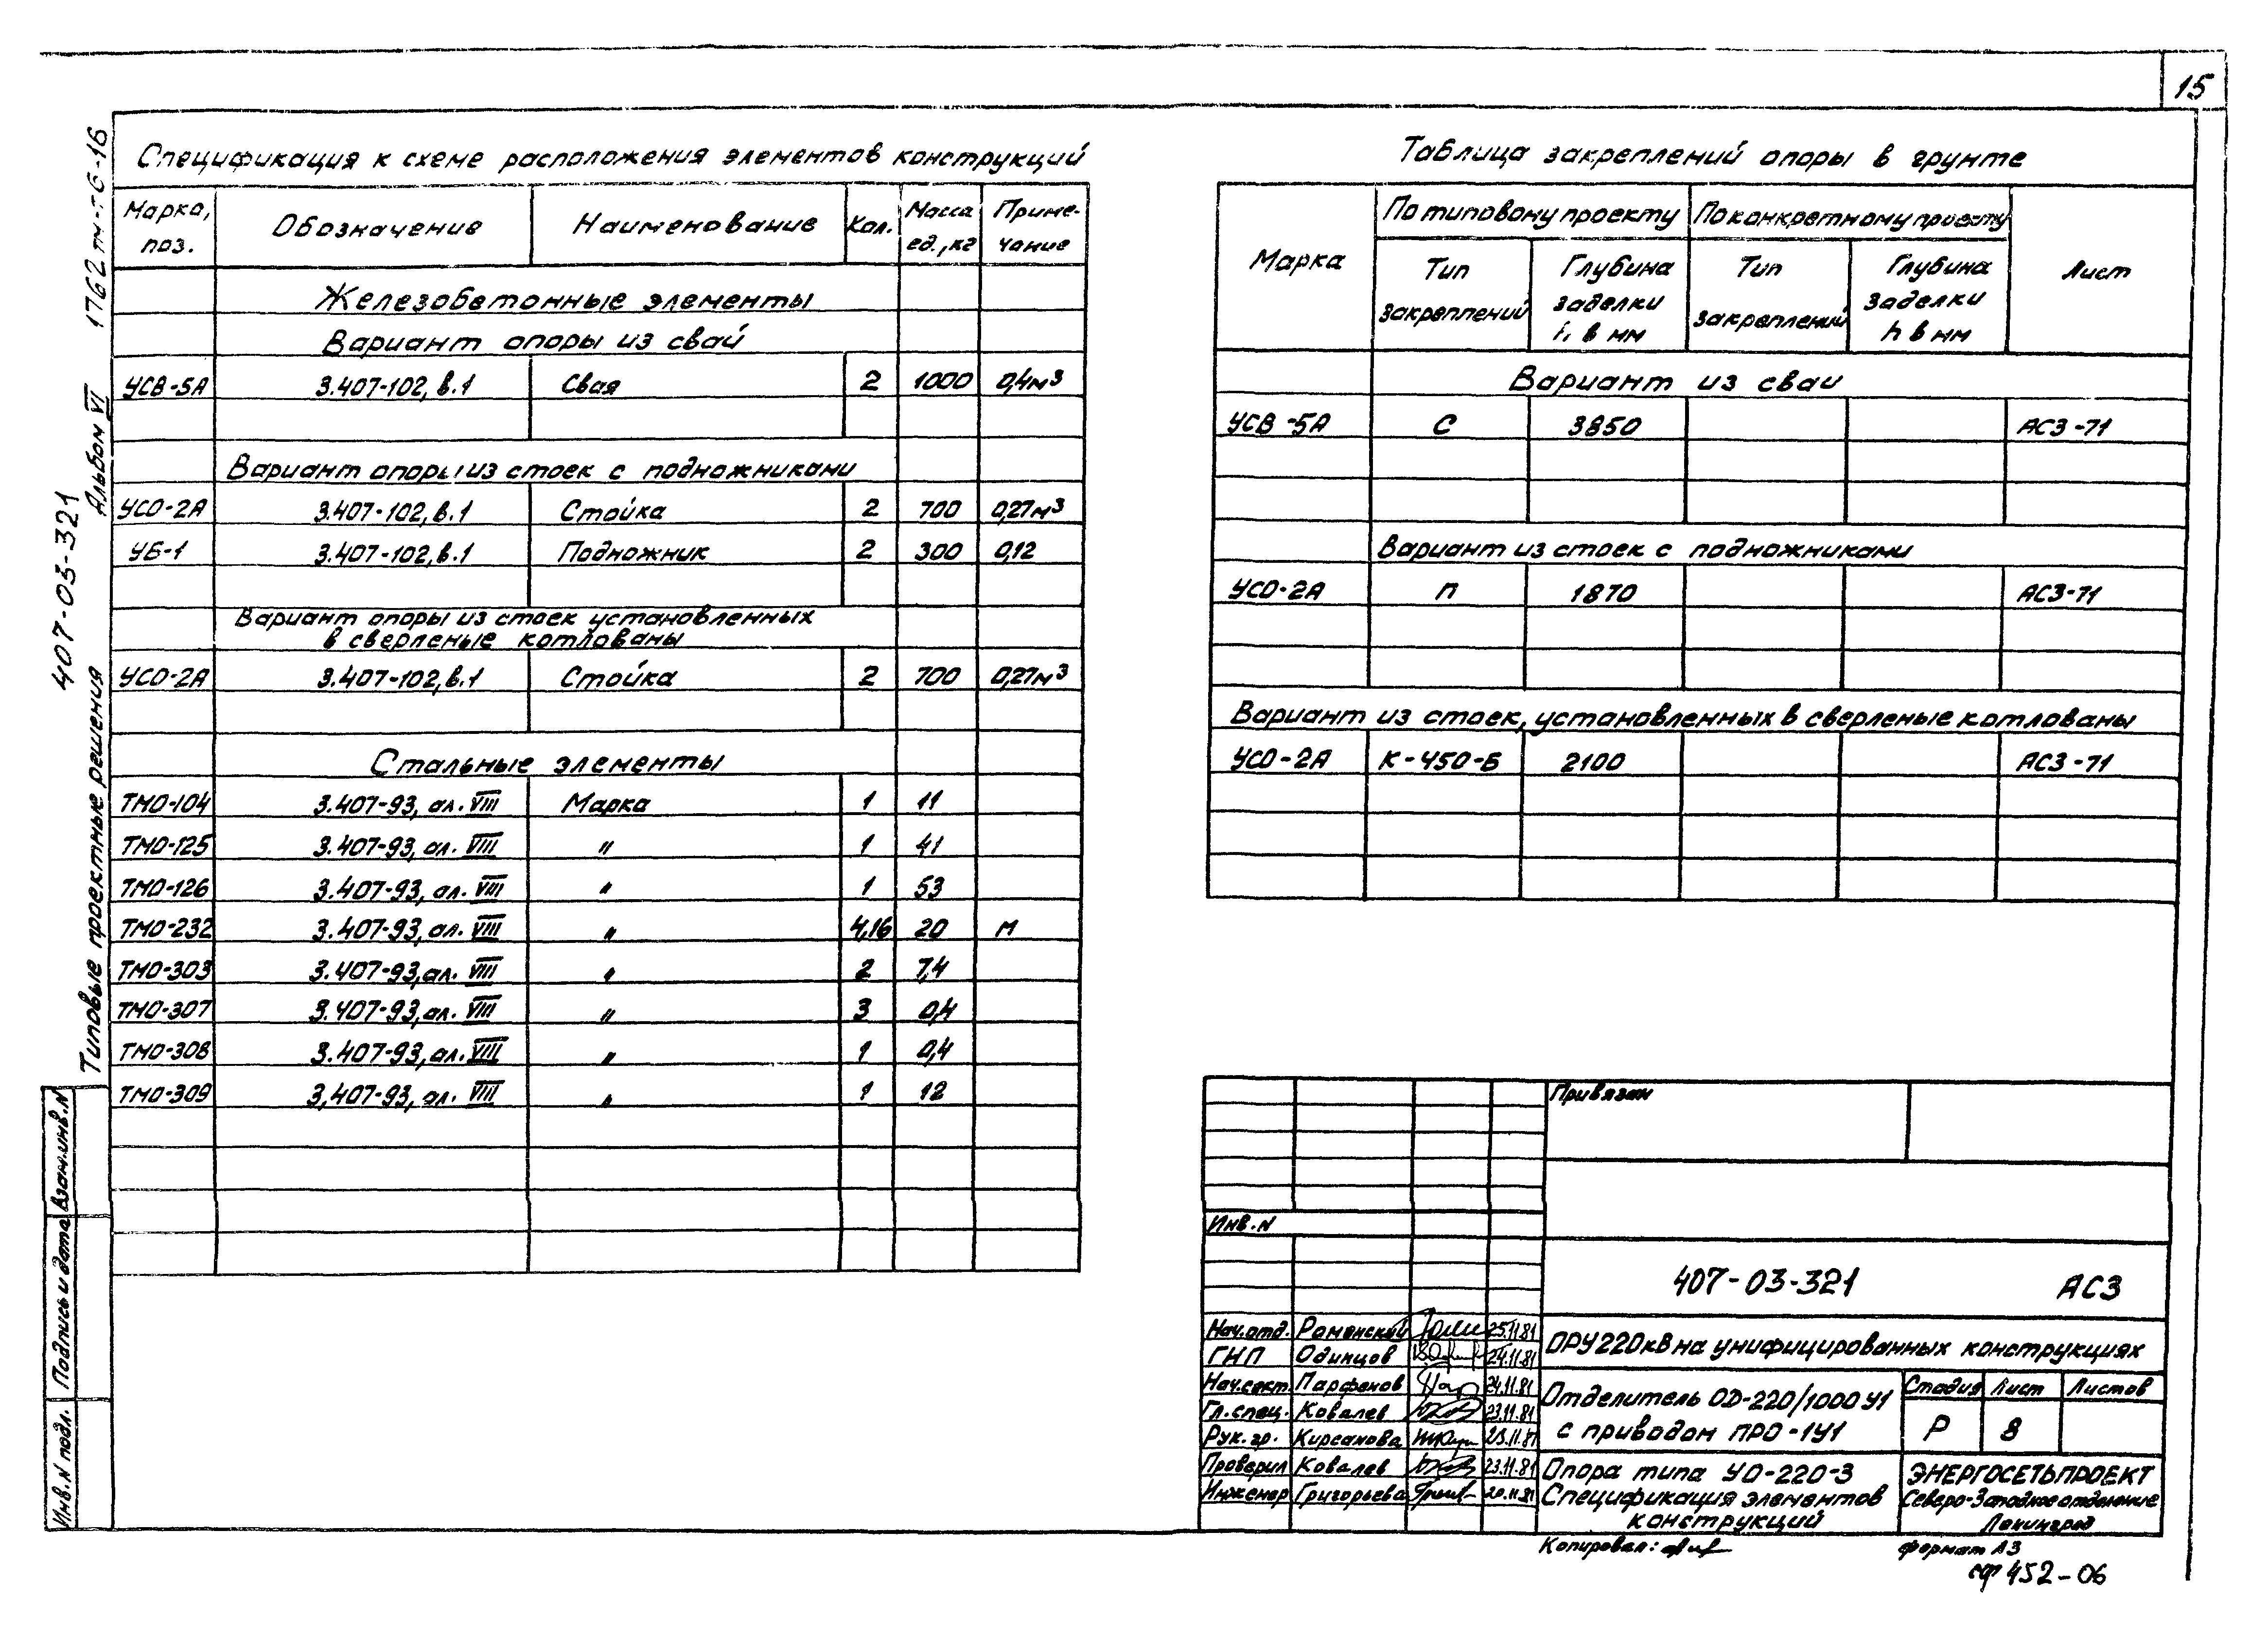 15
Спецификация к схеме расположения элементов конструкций
Марка, поз. Обозначение Наименование Кол. Масса ед., кг Примечание
Железобетонные элементы
Вариант опоры из свай
УСВ-5А 3.407-102, в.1 Свая 2 1000 0,4м³
Вариант опоры из стоек с подножниками
УСО-2А 3.407-102, в.1 Стойка 2 700 0,27м³
УБ-1 3.407-102, в.1 Подножник 2 300 0,12
Вариант опоры из стоек установленных
в сверленые котлованы
УСО-2А 3.407-102, в.1 Стойка 2 700 0,27м³
Стальные элементы
ТМО-104 3.407-93, ал. VIII Марка 1 11
ТМО-125 3.407-93, ал. VIII " 1 41
ТМО-126 3.407-93, ал. VIII " 1 53
ТМО-232 3.407-93, ал. VIII " 4,16 20 м
ТМО-303 3.407-93, ал. VIII " 2 7,4
ТМО-307 3.407-93, ал. VIII " 3 0,4
ТМО-308 3.407-93, ал. VIII " 1 0,4
ТМО-309 3,407-93, ал. VIII " 1 12
Таблица закреплений опоры в грунте
Марка По типовому проекту По конкретному проекту Лист
Тип закреплений Глубина заделки h в мм Тип закреплений Глубина заделки h в мм
Вариант из сваи
УСВ-5А С 3850 АС3-71
Вариант из стоек с подножниками
УСО-2А П 1870 АС3-71
Вариант из стоек, установленных в сверленые котлованы
УСО-2А К-450-Б 2100 АС3-71
Привязан
Инв.N
407-03-321 АС3
Нач.отд. Роменский 25.11.81
ГИП Одинцов 24.11.81
Нач.сект. Парфенов 24.11.81
Гл.спец. Ковалев 23.11.81
Рук.гр. Кирсанова 23.11.81
Проверил Ковалев 23.11.81
Инженер Григорьева 20.11.81
ОРУ 220кВ на унифицированных конструкциях
Отделитель ОД-220/1000 У1
с приводом ПРО-1У1
Стадия Лист Листов
Р 8
Опора типа УО-220-3
Спецификация элементов
конструкций
ЭНЕРГОСЕТЬПРОЕКТ
Северо-Западное отделение
Ленинград
Копировал:
формат А3
сф 452-06
1762тм-т6-16
407-03-321
Типовые проектные решения Альбом VI
Инв.N подл. Подпись и дата Взам.инв.N